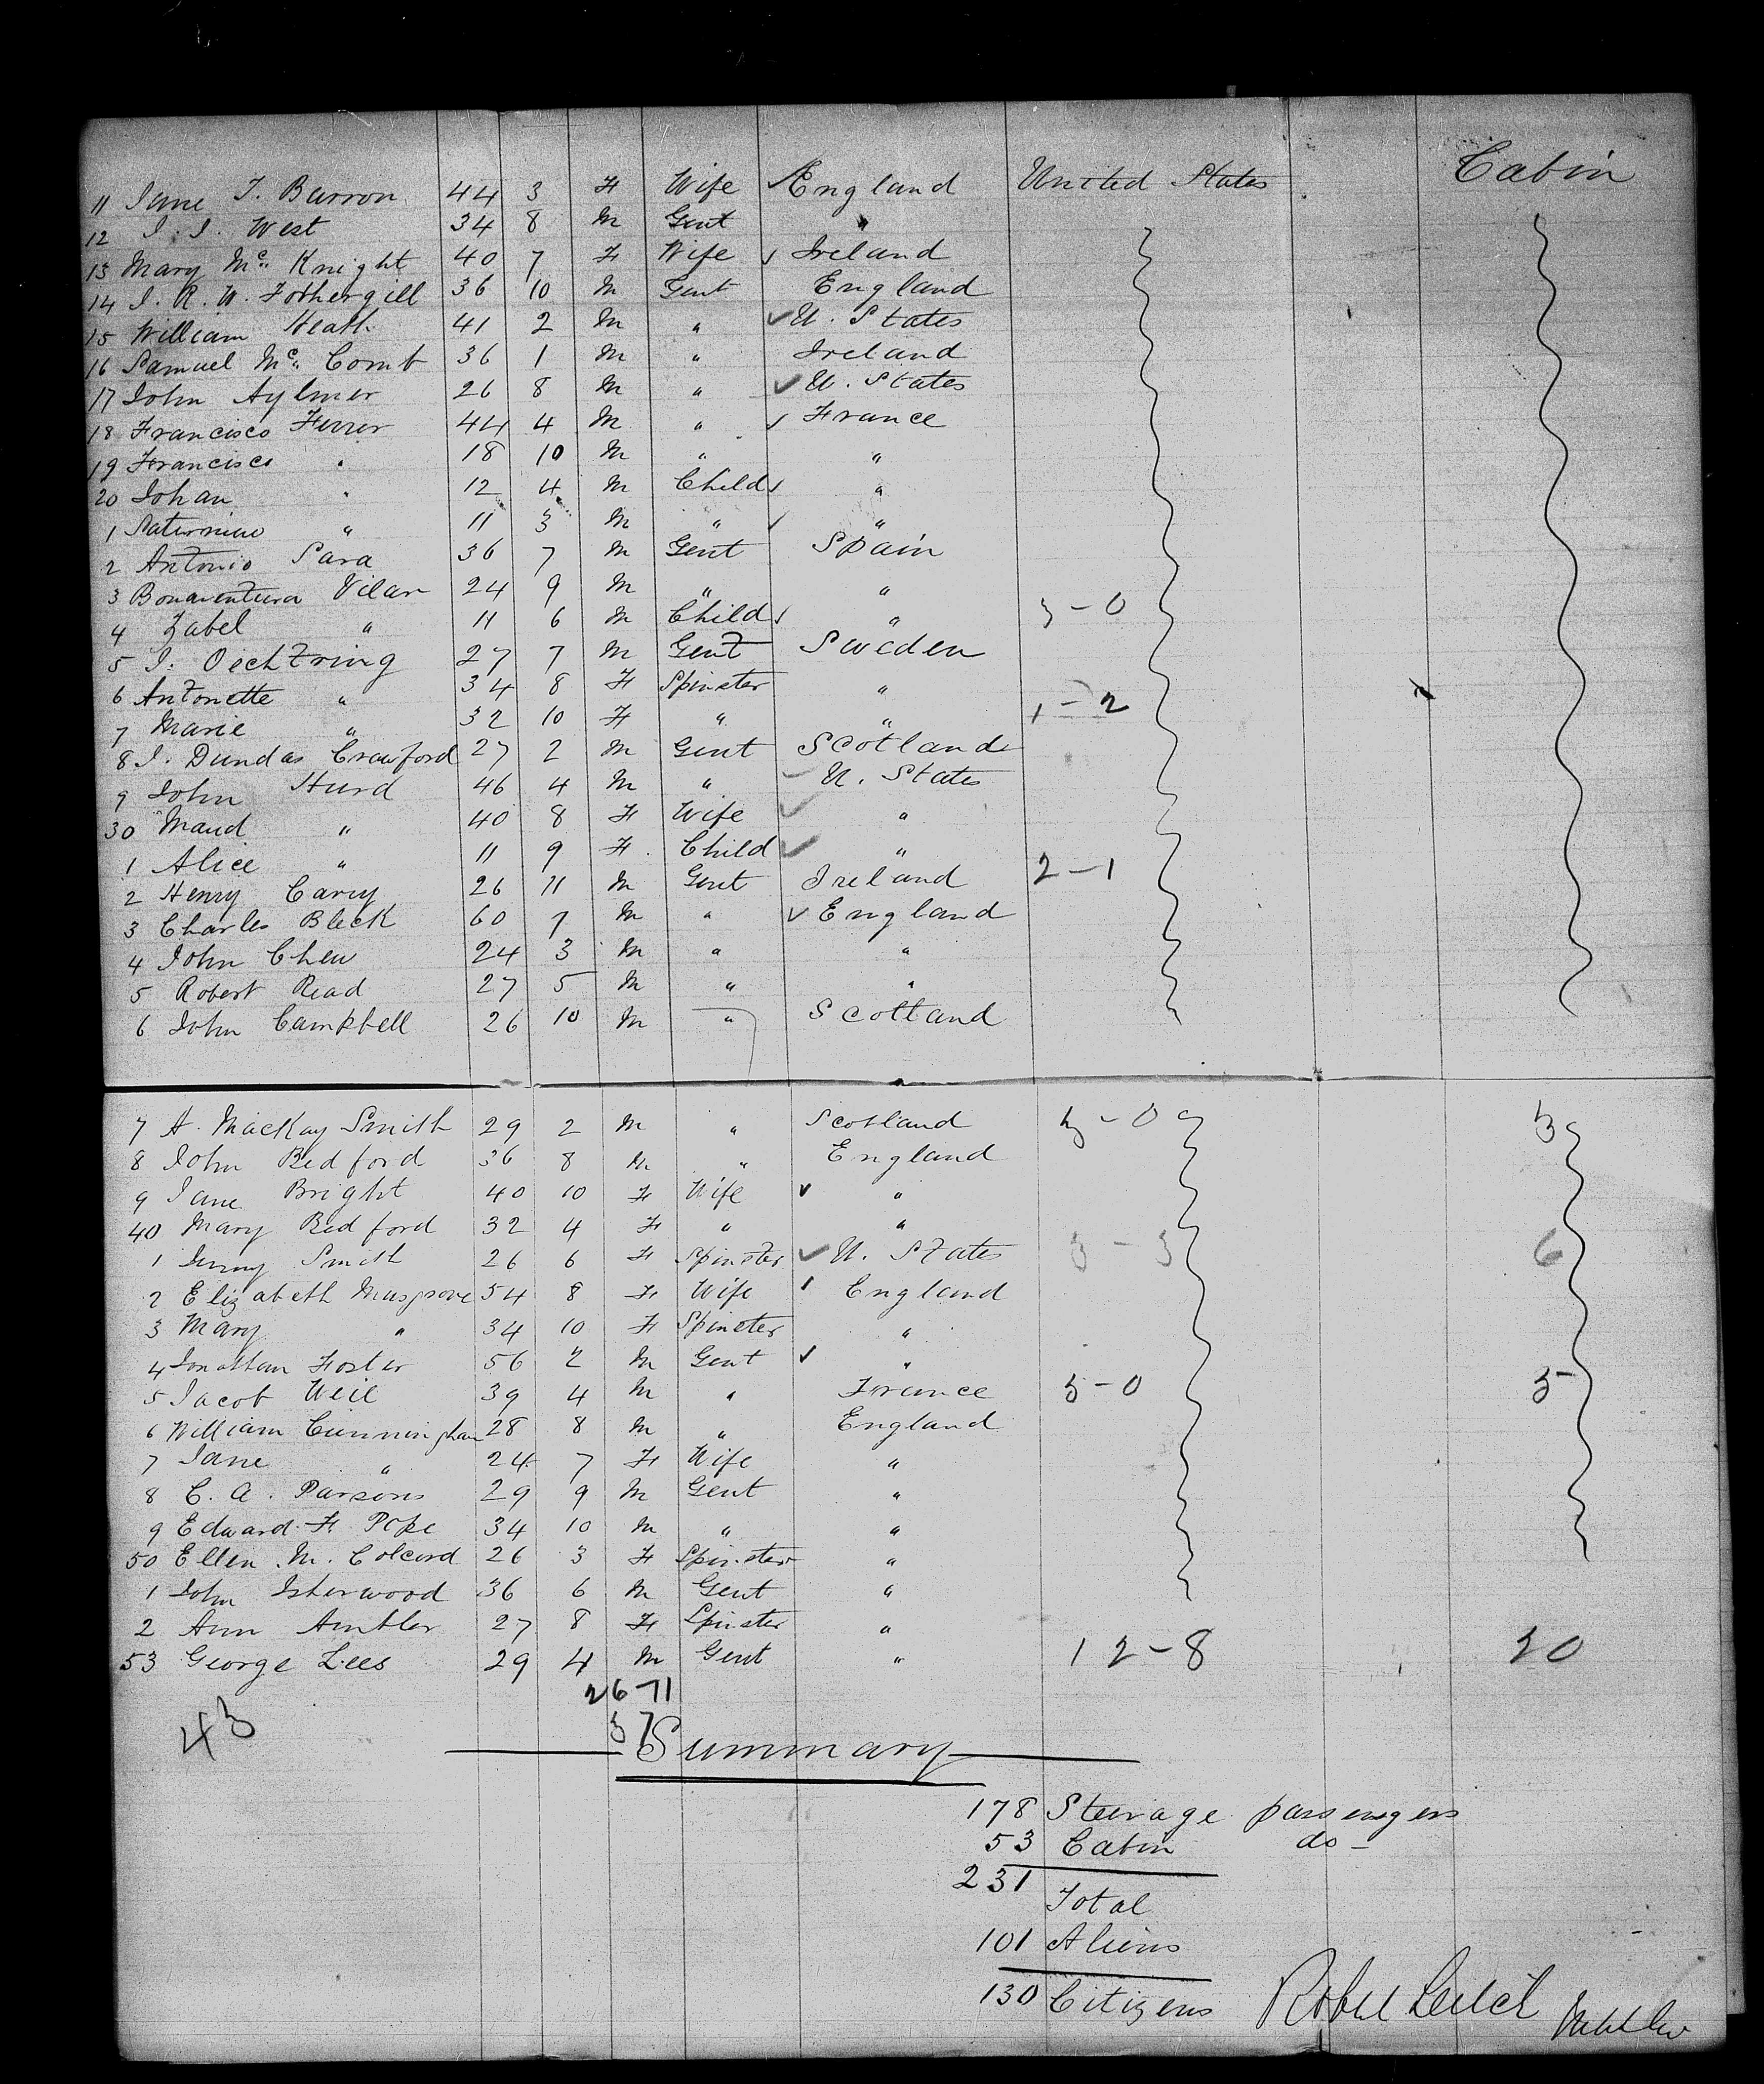 Cabin
11 Jane T. Barron 44 3 F Wife England United States
12 J. J. West 34 8 M Gent "
13 Mary Mc Knight 40 7 F Wife Ireland
14 J. R. W. Fothergill 36 10 M Gent England
15 William Heath 41 2 M " U. States
16 Samuel Mc Comb 36 1 M " Ireland
17 John Aylmer 26 8 M " U. States
18 Francisco Ferrer 44 4 M " France
19 Francisco " 18 10 M " "
20 Johan " 12 4 M Child "
1 Saturnino " 11 3 M " "
2 Antonio Sara 36 7 M Gent Spain
3 Bonaventura Vilar 24 9 M " "
4 Zabel " 11 6 M Child " 3-0
5 J. Oechtring 27 7 M Gent Sweden
6 Antonette " 34 8 F Spinster "
7 Marie " 32 10 F " " 1-2
8 J. Dundas Crawford 27 2 M Gent Scotland
9 John Hurd 46 4 M " U. States
30 Maud " 40 8 F Wife "
1 Alice " 11 9 F Child "
2 Henry Carey 26 11 M Gent Ireland 2-1
3 Charles Bleck 60 7 M " England
4 John Chew 24 3 M " "
5 Robert Read 27 5 M " "
6 John Campbell 26 10 M " Scotland
7 A. MacKay Smith 29 2 M " Scotland 3-0 3
8 John Bedford 36 8 M " England
9 Jane Bright 40 10 F Wife "
40 Mary Bedford 32 4 F " "
1 Jenny Smith 26 6 F Spinster U. States 3-3 6
2 Elizabeth Musgrove 54 8 F Wife England
3 Mary " 34 10 F Spinster "
4 Jonathan Foster 56 2 M Gent "
5 Jacob Weil 39 4 M " France 5-0 5
6 William Cunningham 28 8 M " England
7 Jane " 24 7 F Wife "
8 C. A. Parsons 29 9 M Gent "
9 Edward F. Pope 34 10 M " "
50 Ellen M. Colcord 26 3 F Spinster "
1 John Isherwood 36 6 M Gent "
2 Ann Ambler 27 8 F Spinster "
53 George Lees 29 4 M Gent " 12-8 20
26-11
43
37
Summary
178 Steerage passengers
53 Cabin do
231
Total
101 Aliens
130 Citizens Robert Leitch